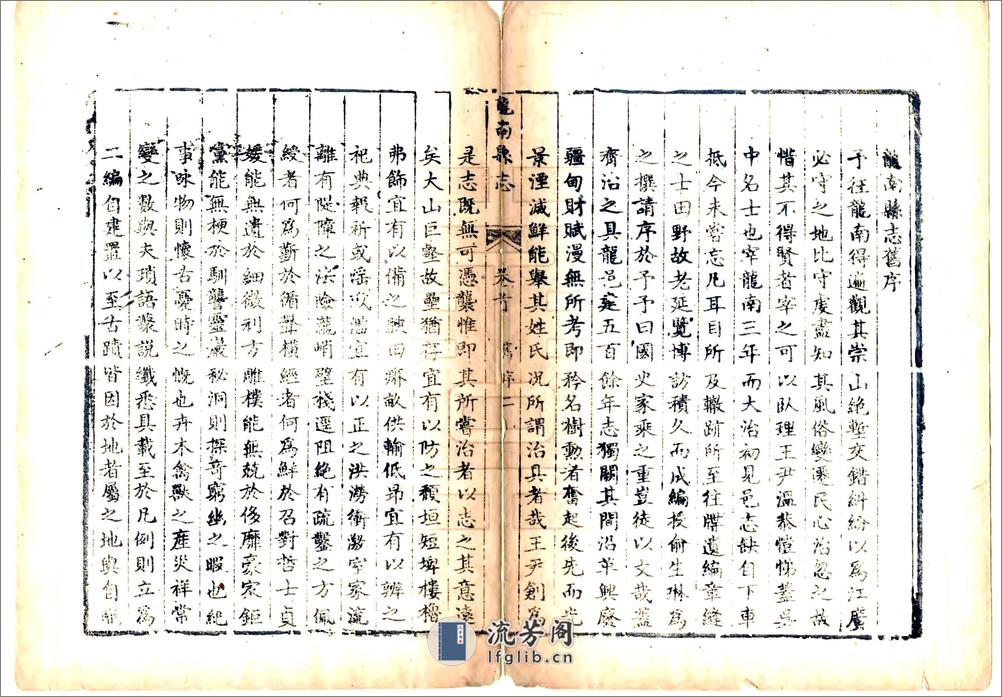 龍南縣志舊序
予往龍南得遍觀其崇山絶塹交錯紏紛以爲江廣
必守之地比守虔盡知其風俗變遷民心治忽之故
惜其不得賢者宰之可以队理王尹溫恭愷悌蓋吳
中名士也宰龍南三年而大治初見邑志缺自下車
抵今未嘗忘凡耳目所及轍跡所至往牒遺編葦縫
之士田野故老延覽博訪積久而成編授俞生琳爲
之撰請序於予予曰國史家乘之重豈徒以文哉蓋
齊治之具龍邑建五百餘年志獨闕其間沿革興廢
疆甸財賦漫無所考即矜名樹勳者奮起後先而光
景湮滅鮮能舉其姓氏况所謂治具者哉王尹創爲
龍南縣志 卷首 舊序 二
是志既無可憑襲惟即其所嘗治者以志之其意遠
矣大山巨壑故壘猶存宜有以防之頹垣短埤樓櫓
弗飾宜有以備之腴田瘠畝供輸低昂宜有以辨之
祀典報祈或淫以濫宜有以正之洪澇衝激室家流
離有隄障之法險巃峭壁棧遲阻絶有疏鑿之方佩
綬者何爲勤於循聲橫經者何爲鮮於召對哲士貞
媛能無遺於細微利方雕樸能無兢於侈靡豪宗鉅
黨能無梗於馴龔靈巖秘洞則探奇窮幽之暇也紀
事咏物則懷古憂時之慨也卉木禽獸之產災祥常
變之數與夫瑣語叢説纖悉具載至於凡例則立爲
二編自建置以至古蹟皆因於地者屬之地與自
流芳阁
lfglib.cn